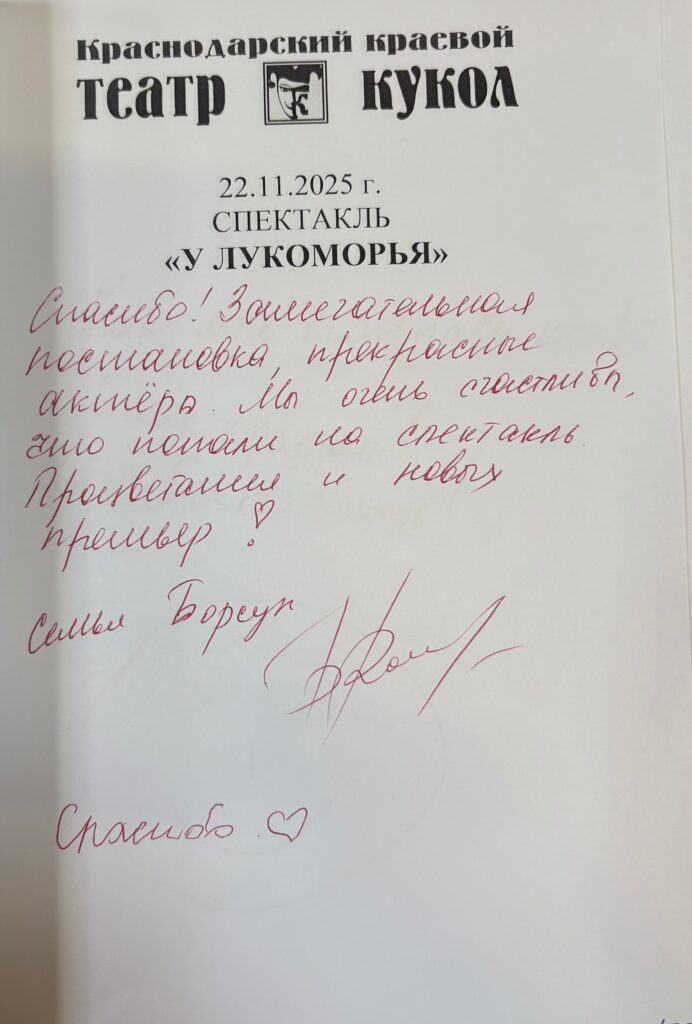 Краснодарский краевой
театр кукол
22.11.2025 г.
СПЕКТАКЛЬ
«У ЛУКОМОРЬЯ»
Спасибо! Замечательная
постановка, прекрасные
актёры. Мы очень счастливы,
что попали на спектакль.
Процветания и новых
премьер!
Семья Борсук
Спасибо